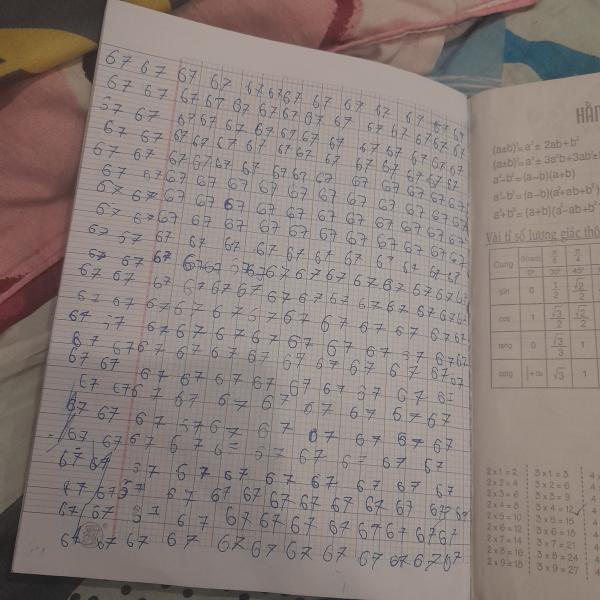 67 67 67 67 67 67 67 67 67 67 67 67 67
67 67 67 67 67 67 67 67 67 67 67 67 67
37 67 67 67 67 67 67 67 67 67 67 67 67
67 67 67 67 67 67 67 67 67 67 67 67 67
67 67 67 67 67 67 67 67 67 67 67 67 67
67 67 67 67 67 67 67 67 67 67 67 67
67 67 67 67 67 67 67 67 67 67 67 67
67 67 67 67 67 67 67 67 67 67 67 67
67 37 67 67 67 67 67 67 67 67 67 67
67 67 67 67 67 37 67 67 67 67 67 67 67
67 67 67 67 67 67 67 67 67 67 67 67
67 67 67 67 67 37 67 67 67 67 67 67
67 37 67 67 67 67 67 67 67 37 67 67
67 67 67 67 67 67 67 67 67 67 67
67 67 67 67 67 67 67 67 37 67 67
67 67 67 67 67 67 67 67 67 67
67 67 67 37 67 67 67 67 67 67
67 67 67 67 67 37 67 67 67 67
67 67 37 67 67 67 67 67 67 67
67 67 37 67 67 67 67 67 67 67 67 67
67 67 37 67 67 67 67 67 67 67 67 67
67 67 67 67 67 67 67 67 67 67 67 67
(a±b)²= a² ± 2ab + b²
a²-b²= (a-b)(a+b)
Vài tỉ số lượng giác
Cung 0(rad) π/6 π/4
0° 30° 45°
sin 0 1/2 √2/2
cos 1 √3/2 √2/2
tang 0 √3/3 1
cotg √3 1
2 x 1 = 2 3 x 1 = 3
2 x 2 = 4 3 x 2 = 6
2 x 3 = 6 3 x 3 = 9
2 x 4 = 8 3 x 4 = 12
2 x 5 = 10 3 x 5 = 15
2 x 6 = 12 3 x 6 = 18
2 x 7 = 14 3 x 7 = 21
2 x 8 = 16 3 x 8 = 24
2 x 9 = 18 3 x 9 = 27